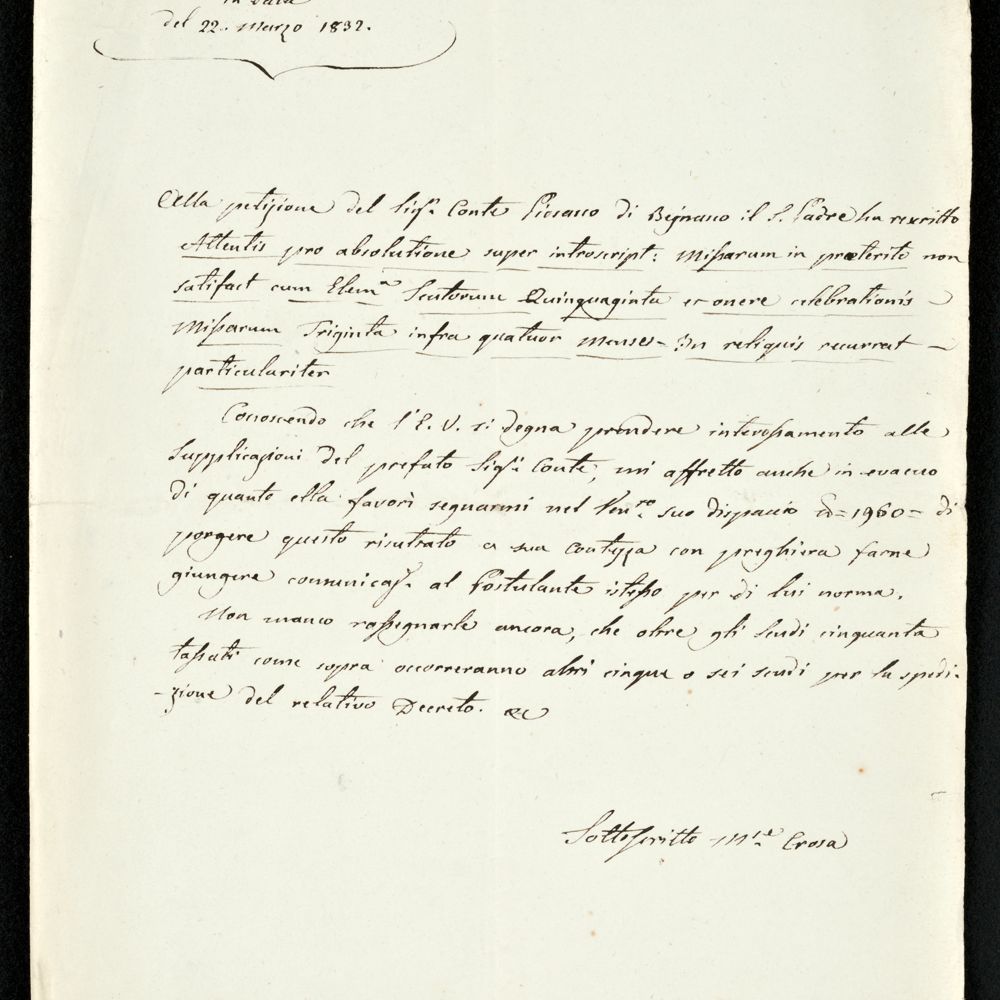 in data
del 22. Marzo 1832.
Alla petizione del Sigr. Conte Piosasco di Beinasco il S. Padre ha rescritto
Attentis pro absolutione super introscript: Missarum in præterito non
satifact cum Elemna Scutorum Quinquaginta et onere celebrationis
Missarum Triginta infra quatuor Menses - In reliquis recurrat -
particulariter
Conoscendo che l'E. V. si degna prendere interessamento alle
Supplicazioni del prefato Sigr. Conte, mi affretto anche in evacuo
di quanto ella favorì segnarmi nel Venro. suo dispaccio = 1960 = di
porgere questo risultato a sua contezza con preghiera farne
giungere comunicaze. al Postulante istesso per di lui norma.
Non manco rassegnarle ancora, che oltre gli Scudi cinquanta
tassati come sopra occorreranno altri cinque o sei scudi per la spedi-
-zione del relativo Decreto. &c
Sottoscritto - Mse. Crosa